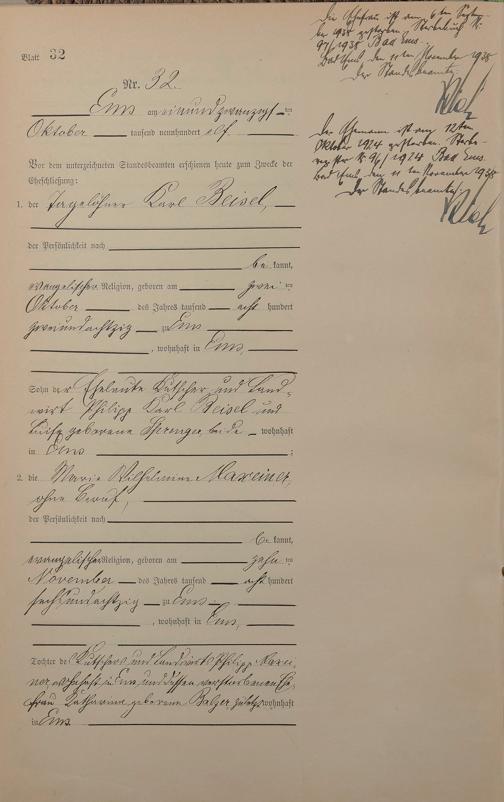 Die Ehefrau ist am 6ten Septem-
ber 1938 gestorben. Sterbebuch Nr.
97/1938 Bad Ems.
Bad Ems, den 11ten November 1938
Der Standesbeamte
Der Ehemann ist am 12ten
Oktober 1924 gestorben. Sterbe-
register Nr. 96/1924 Bad Ems.
Bad Ems, den 11ten November 1938
Der Standesbeamte
Blatt 32
Nr. 32.
Ems am einundzwanzigsten
Oktober tausend neunhundert elf
Vor dem unterzeichneten Standesbeamten erschienen heute zum Zwecke der
Eheschließung:
1. der Tagelöhner Karl Beisel,
der Persönlichkeit nach
bekannt,
evangelischer Religion, geboren am zweiten
Oktober des Jahres tausend acht hundert
zweiundachtzig zu Ems
, wohnhaft in Ems,
Sohn der Eheleute Kutscher und Land-
wirt Philipp Karl Beisel und
Luise geborene Sprenger beide wohnhaft
in Ems ;
2. die Marie Wilhelmine Maxeiner,
ohne Beruf,
der Persönlichkeit nach
bekannt,
evangelischer Religion, geboren am zehnten
November des Jahres tausend acht hundert
sechsundachtzig zu Ems
, wohnhaft in Ems,
Tochter des Kutschers und Landwirts Philipp Maxei-
ner, wohnhaft in Ems, und dessen verstorbenen Ehe-
frau Katharine geborene Balzer, zuletzt wohnhaft
in Ems